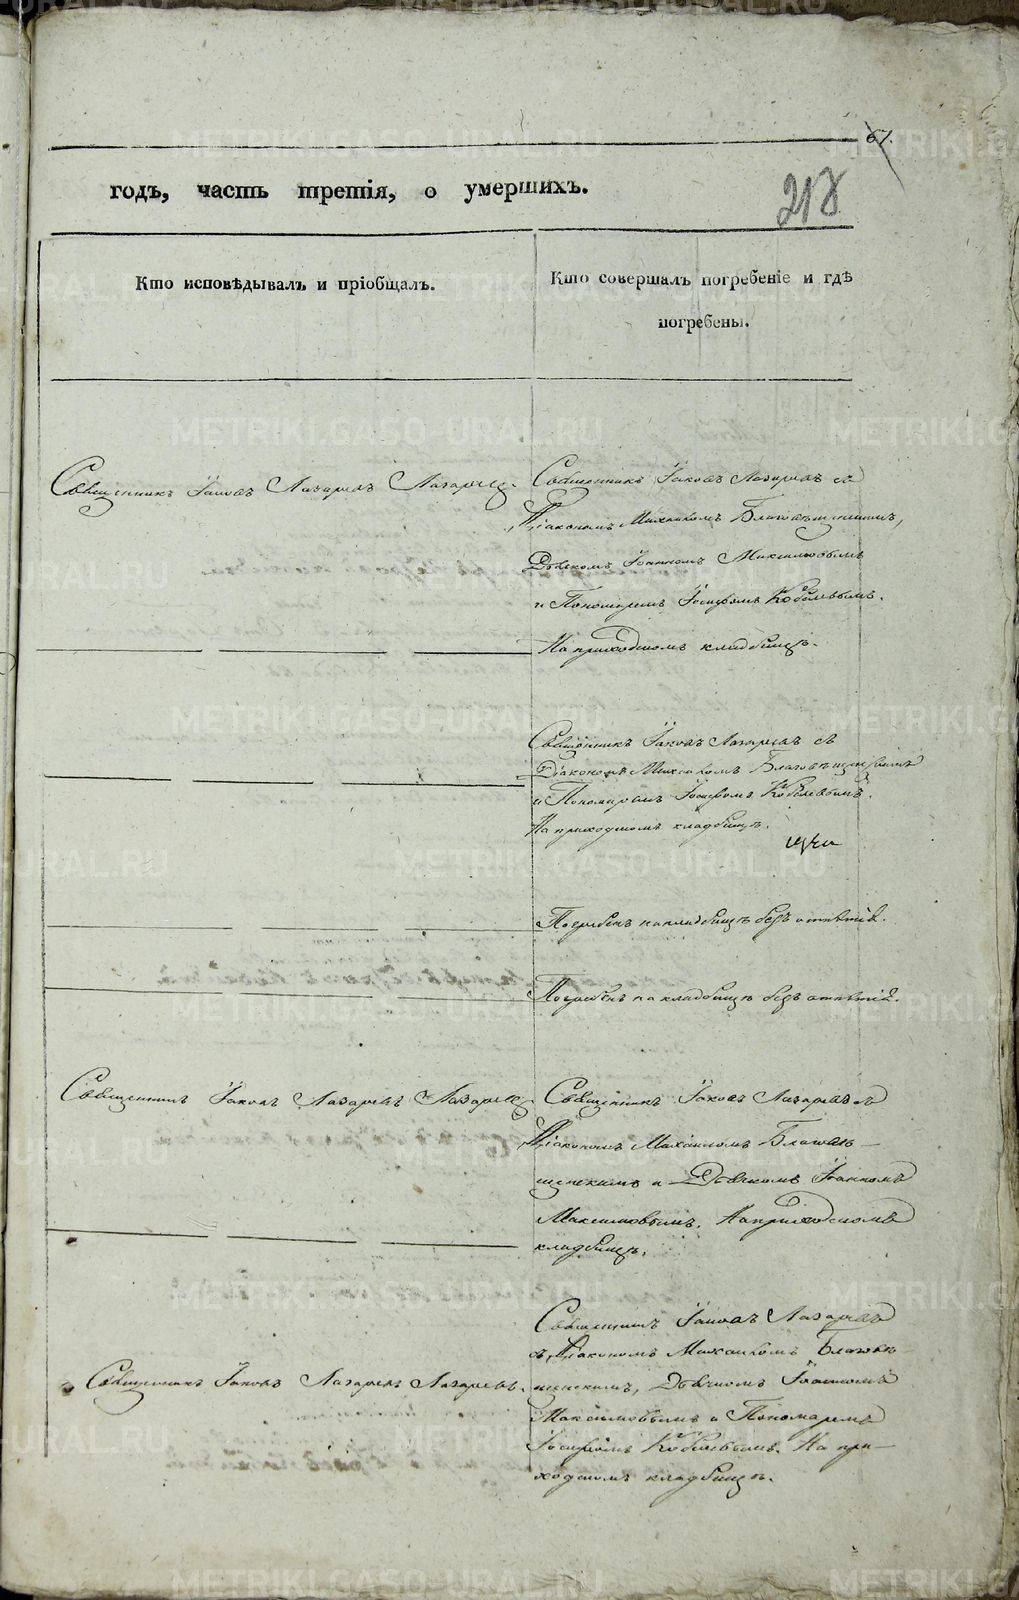 67.
218
годъ, часть третія, о умершихъ.
Кто исповѣдывалъ и пріобщалъ.
Кто совершалъ погребеніе и гдѣ
погребены.
Священникъ Іаковъ Лазаревъ Лазаревъ.
Священникъ Іаковъ Лазаревъ съ
Діакономъ Михаиломъ Благовѣщенскимъ,
Дьячкомъ Іоанномъ Максимовымъ
и Пономаремъ Іосифомъ Кобелевымъ.
На приходскомъ кладбищѣ.
Священникъ Іаковъ Лазаревъ съ
Діакономъ Михаиломъ Благовѣщенскимъ
и Пономаремъ Іосифомъ Кобелевымъ.
На приходскомъ кладбищѣ.
Погребенъ на кладбищѣ безъ отпѣтія.
Погребенъ на кладбищѣ безъ отпѣтія.
Священникъ Іаковъ Лазаревъ Лазаревъ
Священникъ Іаковъ Лазаревъ съ
Діакономъ Михаиломъ Благовѣ-
щенскимъ и Дьячкомъ Іоанномъ
Максимовымъ. На приходскомъ
кладбищѣ.
Священникъ Іаковъ Лазаревъ Лазаревъ.
Священникъ Іаковъ Лазаревъ
съ Діакономъ Михаиломъ Благовѣ-
щенскимъ, Дьячкомъ Іоанномъ
Максимовымъ и Пономаремъ
Іосифомъ Кобелевымъ. На при-
ходскомъ кладбищѣ.
METRIKI.GASO-URAL.RU